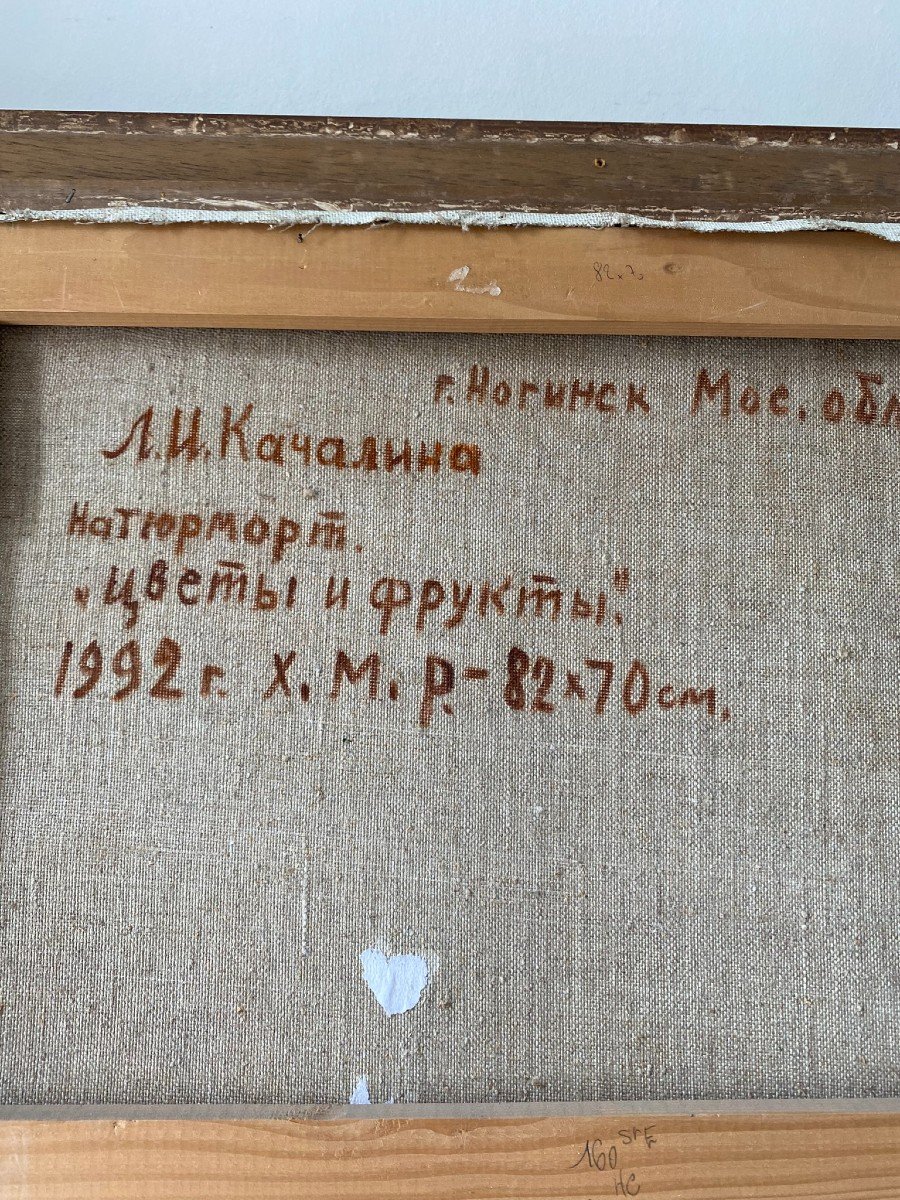 82x70
г. Ногинск Мос. обл
Л.И. Качалина
Натюрморт.
„Цветы и фрукты."
1992 г. Х. М. Р. - 82x70 см.
160